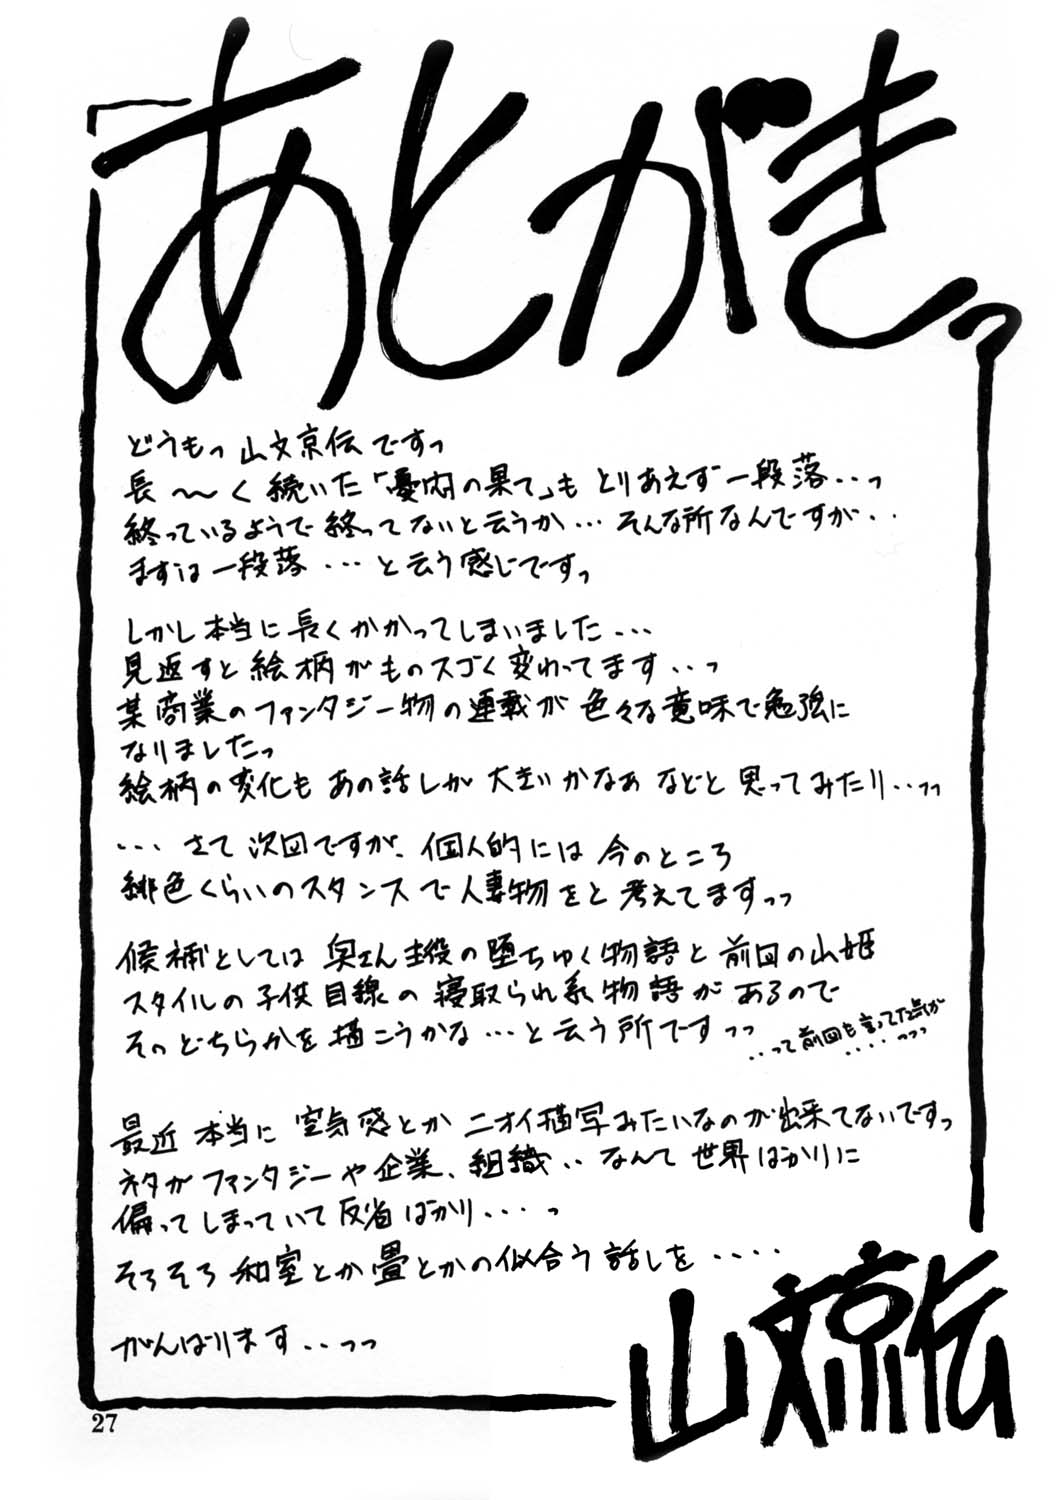 あとがきっ
どうもっ山文京伝ですっ
長〜く続いた「憂肉の果て」もとりあえず一段落‥っ
終っているようで終ってないと云うか…そんな所なんですが‥
まずは一段落…と云う感じですっ
しかし本当に長くかかってしまいました…
見返すと絵柄がものスゴく変わってます‥っ
某商業のファンタジー物の連載が色々な意味で勉強に
なりましたっ
絵柄の変化もあの話しが大きいかなあなどと思ってみたり‥っっ
…さて次回ですが、個人的には今のところ
緋色くらいのスタンスで人妻物をと考えてますっっ
候補としては奥さん主役の堕ちゆく物語と前回の山姫
スタイルの子供目線の寝取られ系物語があるので
そのどちらかを描こうかな…と云う所ですっっ
‥って前回も言ってた気が
‥‥っっっ
最近本当に空気感とかニオイ描写みたいなのが出来てないですっ
ネタがファンタジーや企業、組織‥なんて世界ばかりに
偏ってしまっていて反省ばかり‥‥っ
そろそろ和室とか畳とかの似合う話しを‥‥
がんばります‥っっ
山文京伝
27